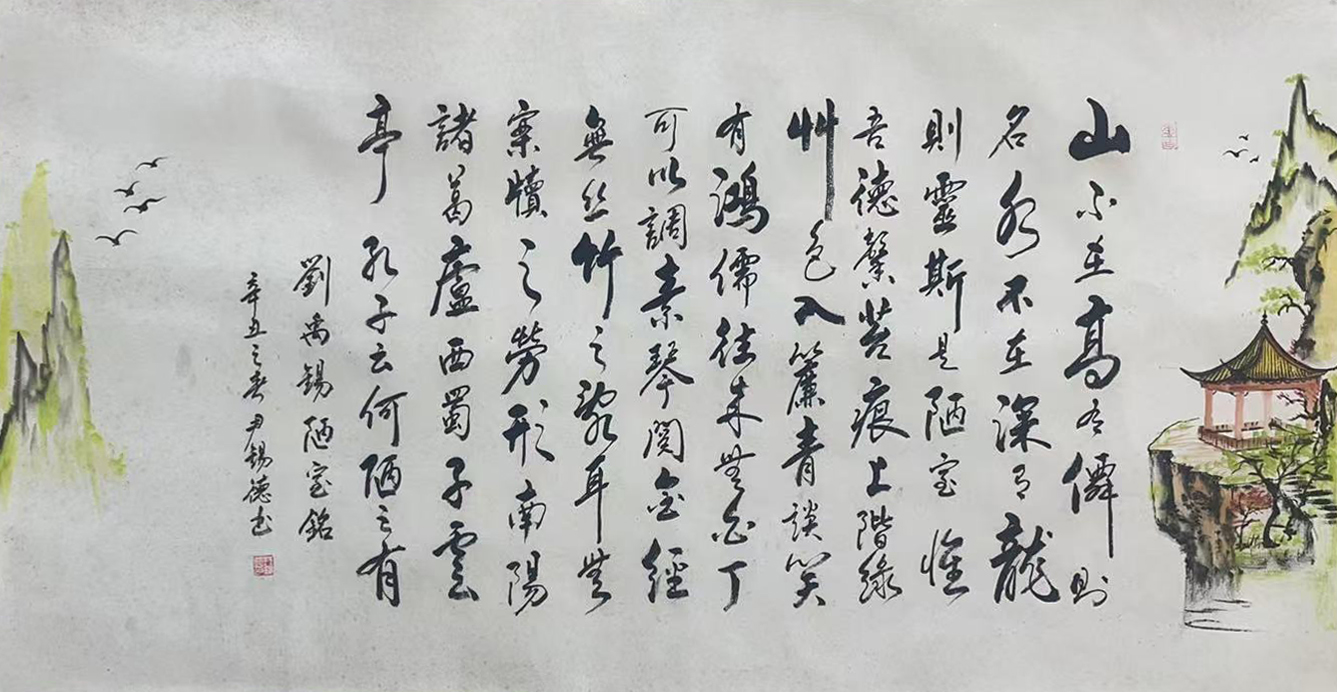 山不在高有僊則
名水不在深有龍
則靈斯是陋室惟
吾德馨苔痕上階綠
艸色入簾青談笑
有鴻儒往來無白丁
可以調素琴閱金經
無丝竹之亂耳無
案牘之勞形南陽
諸葛廬西蜀子雲
亭孔子云何陋之有
劉禹錫陋室銘
辛丑之春尹錫德书